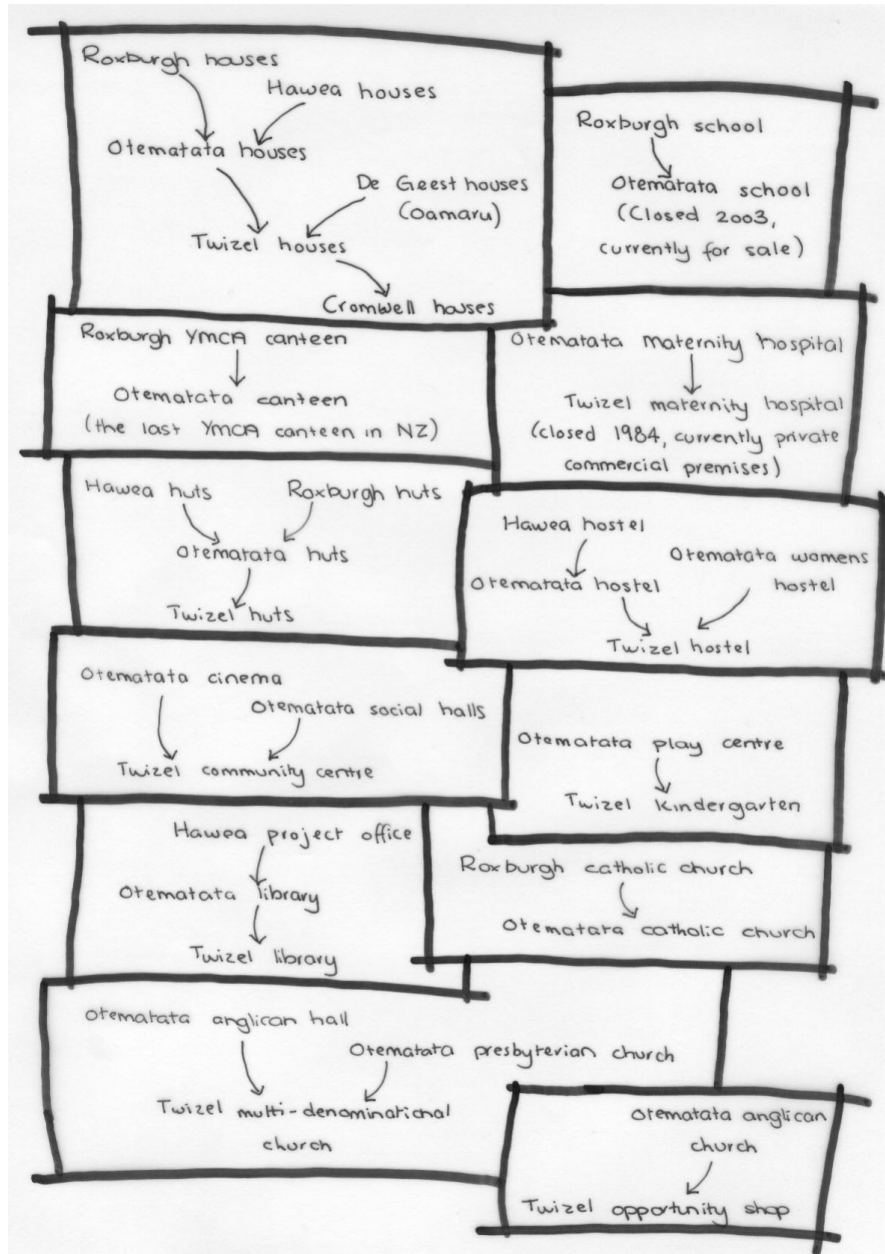 Roxburgh houses
Hawea houses
Otematata houses
De Geest houses
(Oamaru)
Twizel houses
Cromwell houses
Roxburgh school
Otematata school
(Closed 2003,
currently for sale)
Roxburgh YMCA canteen
Otematata canteen
(the last YMCA canteen in NZ)
Otematata maternity hospital
Twizel maternity hospital
(closed 1984, currently private
commercial premises)
Hawea huts
Roxburgh huts
Otematata huts
Twizel huts
Hawea hostel
Otematata womens
hostel
Otematata hostel
Twizel hostel
Otematata cinema
Otematata social halls
Twizel community centre
Otematata play centre
Twizel kindergarten
Hawea project office
Otematata library
Twizel library
Roxburgh catholic church
Otematata catholic church
Otematata anglican hall
Otematata presbyterian church
Twizel multi-denominational
church
Otematata anglican
church
Twizel opportunity shop